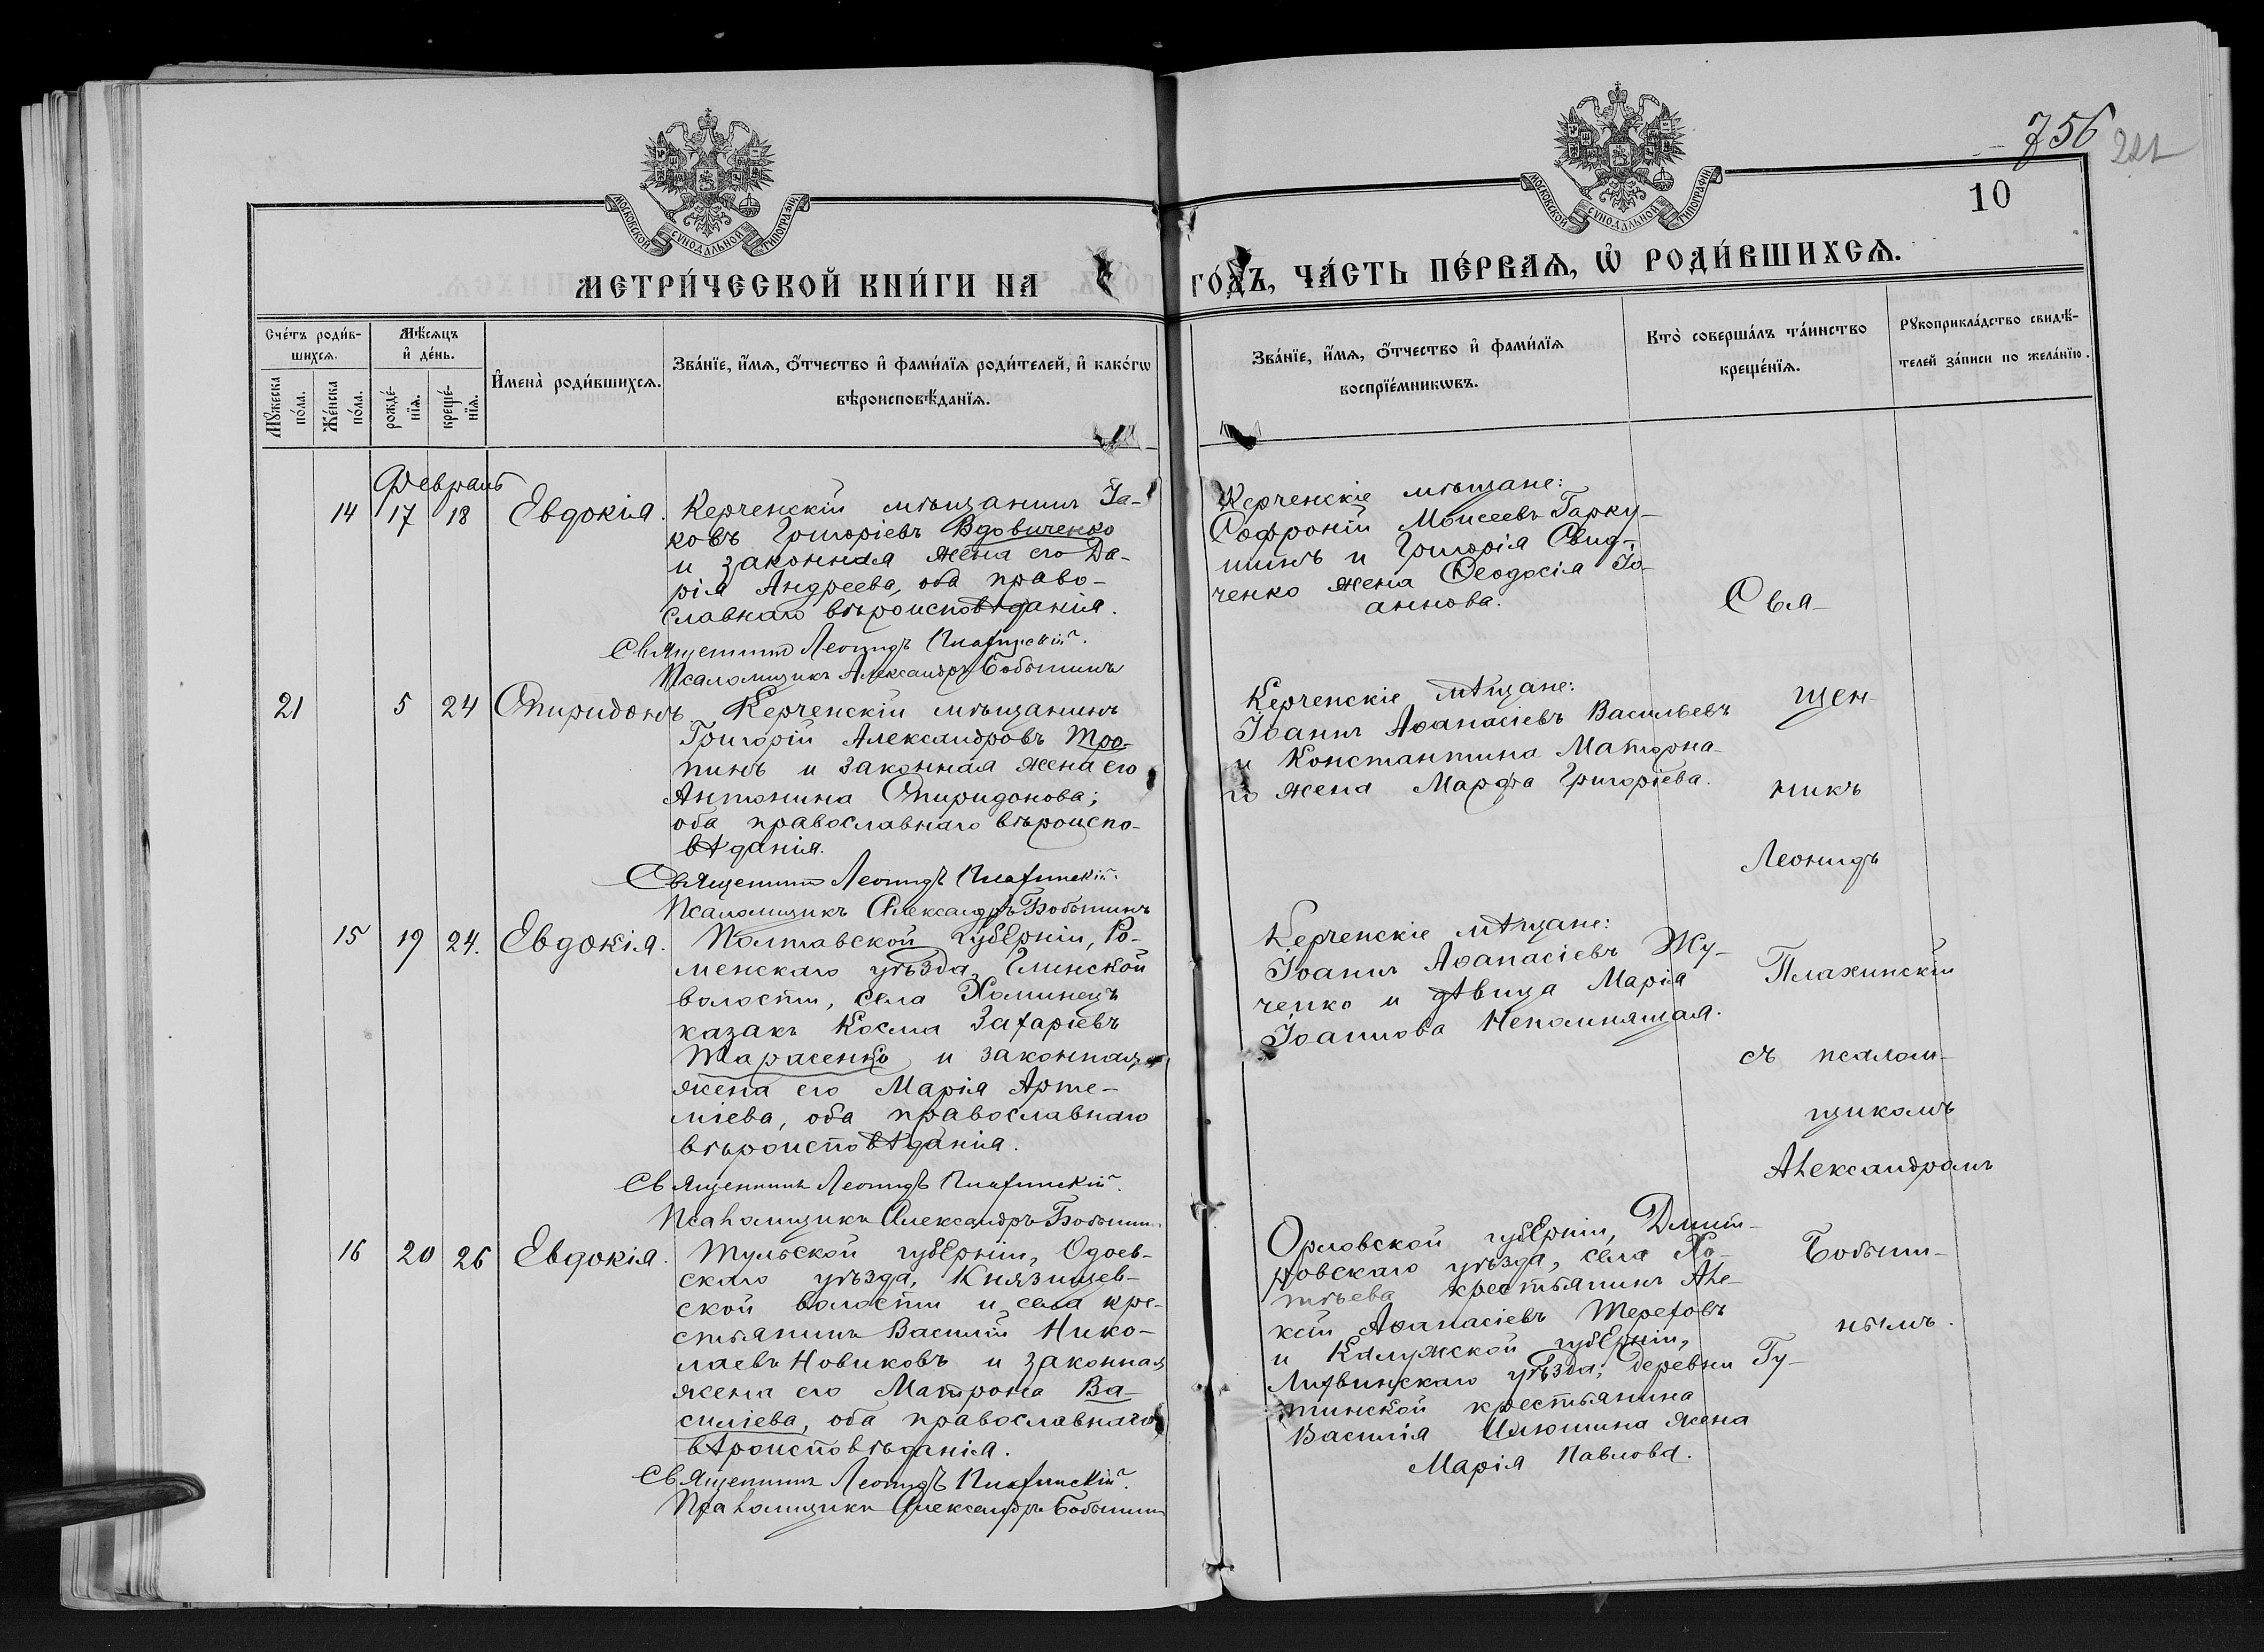 756
221
10
МОСКОВСКОЙ СУНОДАЛЬНОЙ ТИПОГРАФІИ
МОСКОВСКОЙ СУНОДАЛЬНОЙ ТИПОГРАФІИ
МЕТРИ́ЧЕСКОЙ КНИ́ГИ НА ГО́ДЪ, ЧА́СТЬ ПЕ́РВАѦ, Ѡ҆ РОДИ́ВШИХСѦ.
Сче́тъ роди́в-
шихсѧ.
Мꙋ́жеска по́ла.
Же́нска по́ла.
Мѣ́сѧцъ
и҆ де́нь.
рожде́-
нїѧ.
креще́-
нїѧ.
И҆мена̀ роди́вшихсѧ.
Зва́нїе, и҆́мѧ, ѻ҆́тчество и҆ фами́лїѧ роди́телей, и҆ како́гѡ
вѣроисповѣ́данїѧ.
Зва́нїе, и҆́мѧ, ѻ҆́тчество и҆ фами́лїѧ
воспрїе́мникѡвъ.
Кто̀ соверша́лъ та́инство
креще́нїѧ.
Рꙋкоприкла́дство свидѣ́-
телей за́писи по жела́нїю.
Февраль
14 17 18 Евдокія.
Керченскій мѣщанинъ Іа-
ковъ Григоріевъ Вдовиченко
и законная жена его Да-
рія Андреева, оба право-
славнаго вѣроисповѣданія.
Священникъ Леонидъ Плахинскій.
Псаломщикъ Александръ Бобынинъ
Керченскіе мѣщане:
Софроній Моисеевъ Гарку-
шинъ и Григорія Свид-
ченко жена Ѳеодосія Іо-
аннова.
21 5 24 Спиридонъ.
Керченскій мѣщанинъ
Григорій Александровъ Тро-
пинъ и законная жена его
Антонина Спиридонова;
оба православнаго вѣроиспо-
вѣданія.
Священникъ Леонидъ Плахинскій.
Псаломщикъ Александръ Бобынинъ
Керченскіе мѣщане:
Іоаннъ Аѳанасіевъ Васильевъ
и Константина Матрона-
го жена Марфа Григоріева.
15 19 24. Евдокія.
Полтавской губерніи, Ро-
менскаго уѣзда, Глинской
волости, села Хоминецъ
казакъ Косма Захаріевъ
Тарасенко и законная
жена его Марія Арте-
міева, оба православнаго
вѣроисповѣданія.
Священникъ Леонидъ Плахинскій.
Псаломщикъ Александръ Бобынинъ
Керченскіе мѣщане:
Іоаннъ Аѳанасіевъ Жу-
ченко и дѣвица Марія
Іоаннова Непомнящая.
16 20 26 Евдокія.
Тульской губерніи, Одоев-
скаго уѣзда, Князищев-
ской волости и села кре-
стьянинъ Василій Нико-
лаевъ Новиковъ и законная
жена его Матрона Ва-
силіева, оба православнаго
вѣроисповѣданія.
Священникъ Леонидъ Плахинскій.
Псаломщикъ Александръ Бобынинъ
Орловской губерніи, Дмит-
ровскаго уѣзда, села Хо-
тѣева крестьянинъ Але-
ксій Аѳанасіевъ Тереховъ
и Калужской губерніи,
Лихвинскаго уѣзда, деревни Гу-
тинской крестьянина
Василія Илюшина жена
Марія Павлова.
Свя-
щен-
никъ
Леонидъ
Плахинскій
съ псалом-
щикомъ
Александромъ
Бобыни-
нымъ.